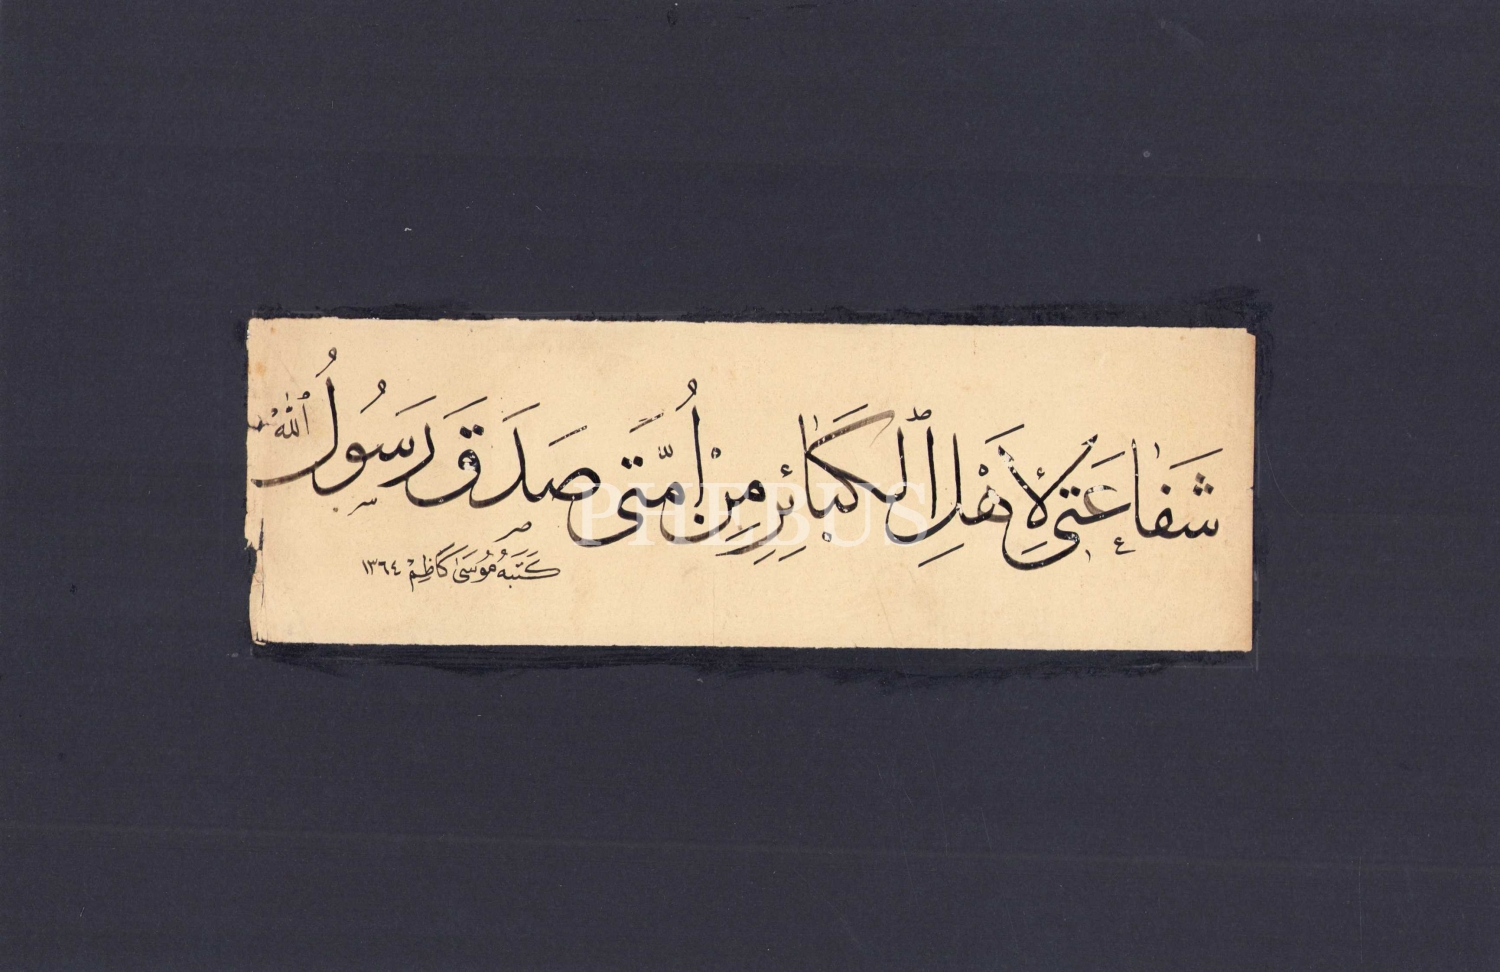 شَفَاعَتِى لِأَهْلِ ٱلْكَبَائِرِ مِنْ أُمَّتِى صَدَقَ رَسُولُ ٱللّٰه
كَتَبَهُ مُوسَى كَاظِمْ ١٣٦٤
PHEBUS